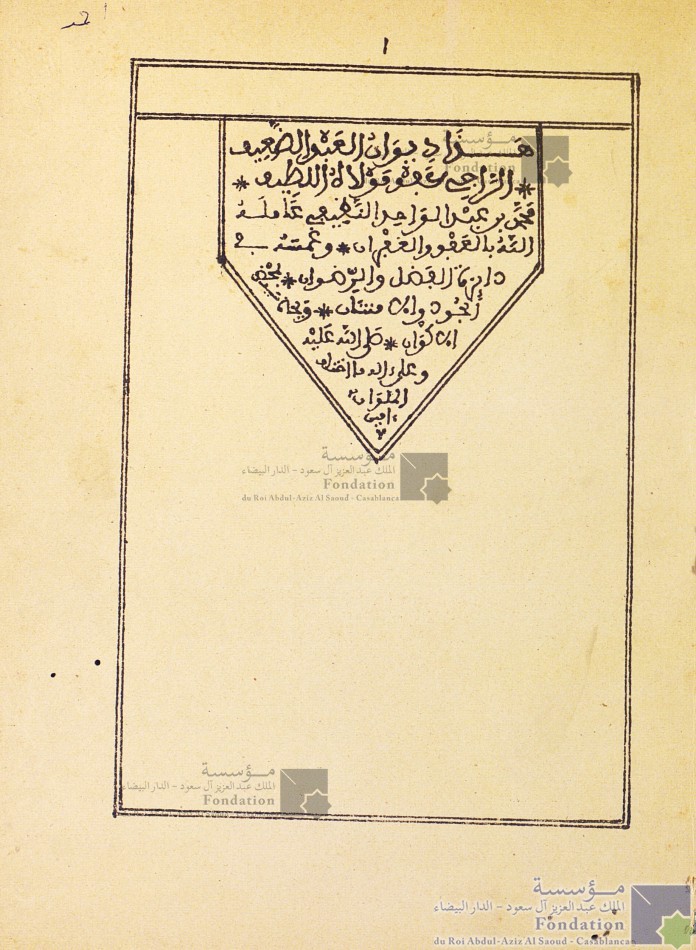 ١
هَذَا دِيوَانُ العَبْدِ الضَّعِيفِ
* الرَّاجِي عَفْوَ مَوْلَاهُ اللَّطِيفِ *
مُحَمَّدِ بن عَبْدِ الوَاحِدِ النَّظِيفِي عَامَلَهُ
اللَّهُ بِالعَفْوِ وَالغُفْرَانِ * وَغَمَسَهُ فِي
دَائِرَةِ الفَضْلِ وَالرِّضْوَانِ * بِمَحْضِ
الجُودِ وَالامْتِنَانِ * وَبِجَاهِ
الأكْوَانِ * صَلَّى اللَّهُ عَلَيْهِ
وعلى اله ما اختلف
المَلَوَانِ
امين
مؤسسة
الملك عبد العزيز آل سعود - الدار البيضاء
Fondation
du Roi Abdul-Aziz Al Saoud - Casablanca
مؤسسة
الملك عبد العزيز آل سعود - الدار البيضاء
Fondation
مؤسسة
الملك عبد العزيز آل سعود - الدار البيضاء
Fondation
du Roi Abdul-Aziz Al Saoud - Casablanca